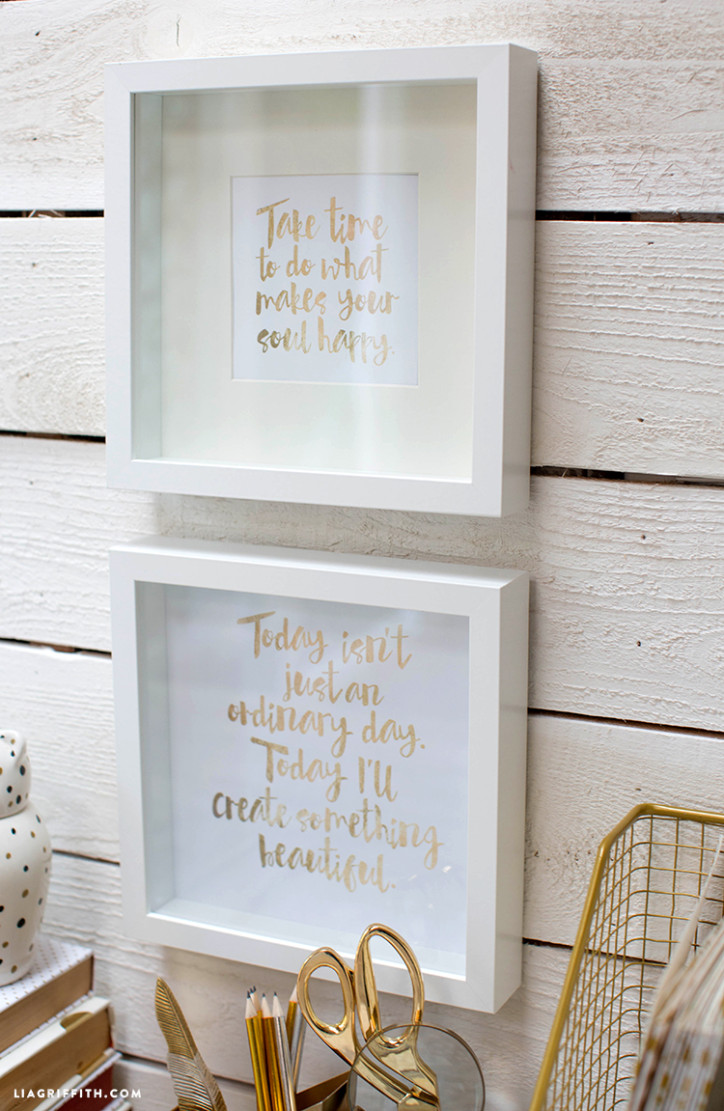 Take time
to do what
makes your
soul happy.
Today isn't
just an
ordinary day.
Today I'll
create something
beautiful.
LIAGRIFFITH.COM